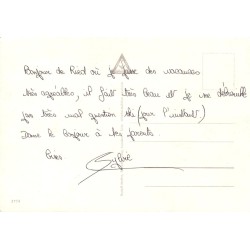 Bonjour de Ried où je passe des vacances
très agréables, il fait très beau et je me débrouille
pas très mal question ski (pour l'instant)
Donne le bonjour à tes parents.
Bises
Sylvie